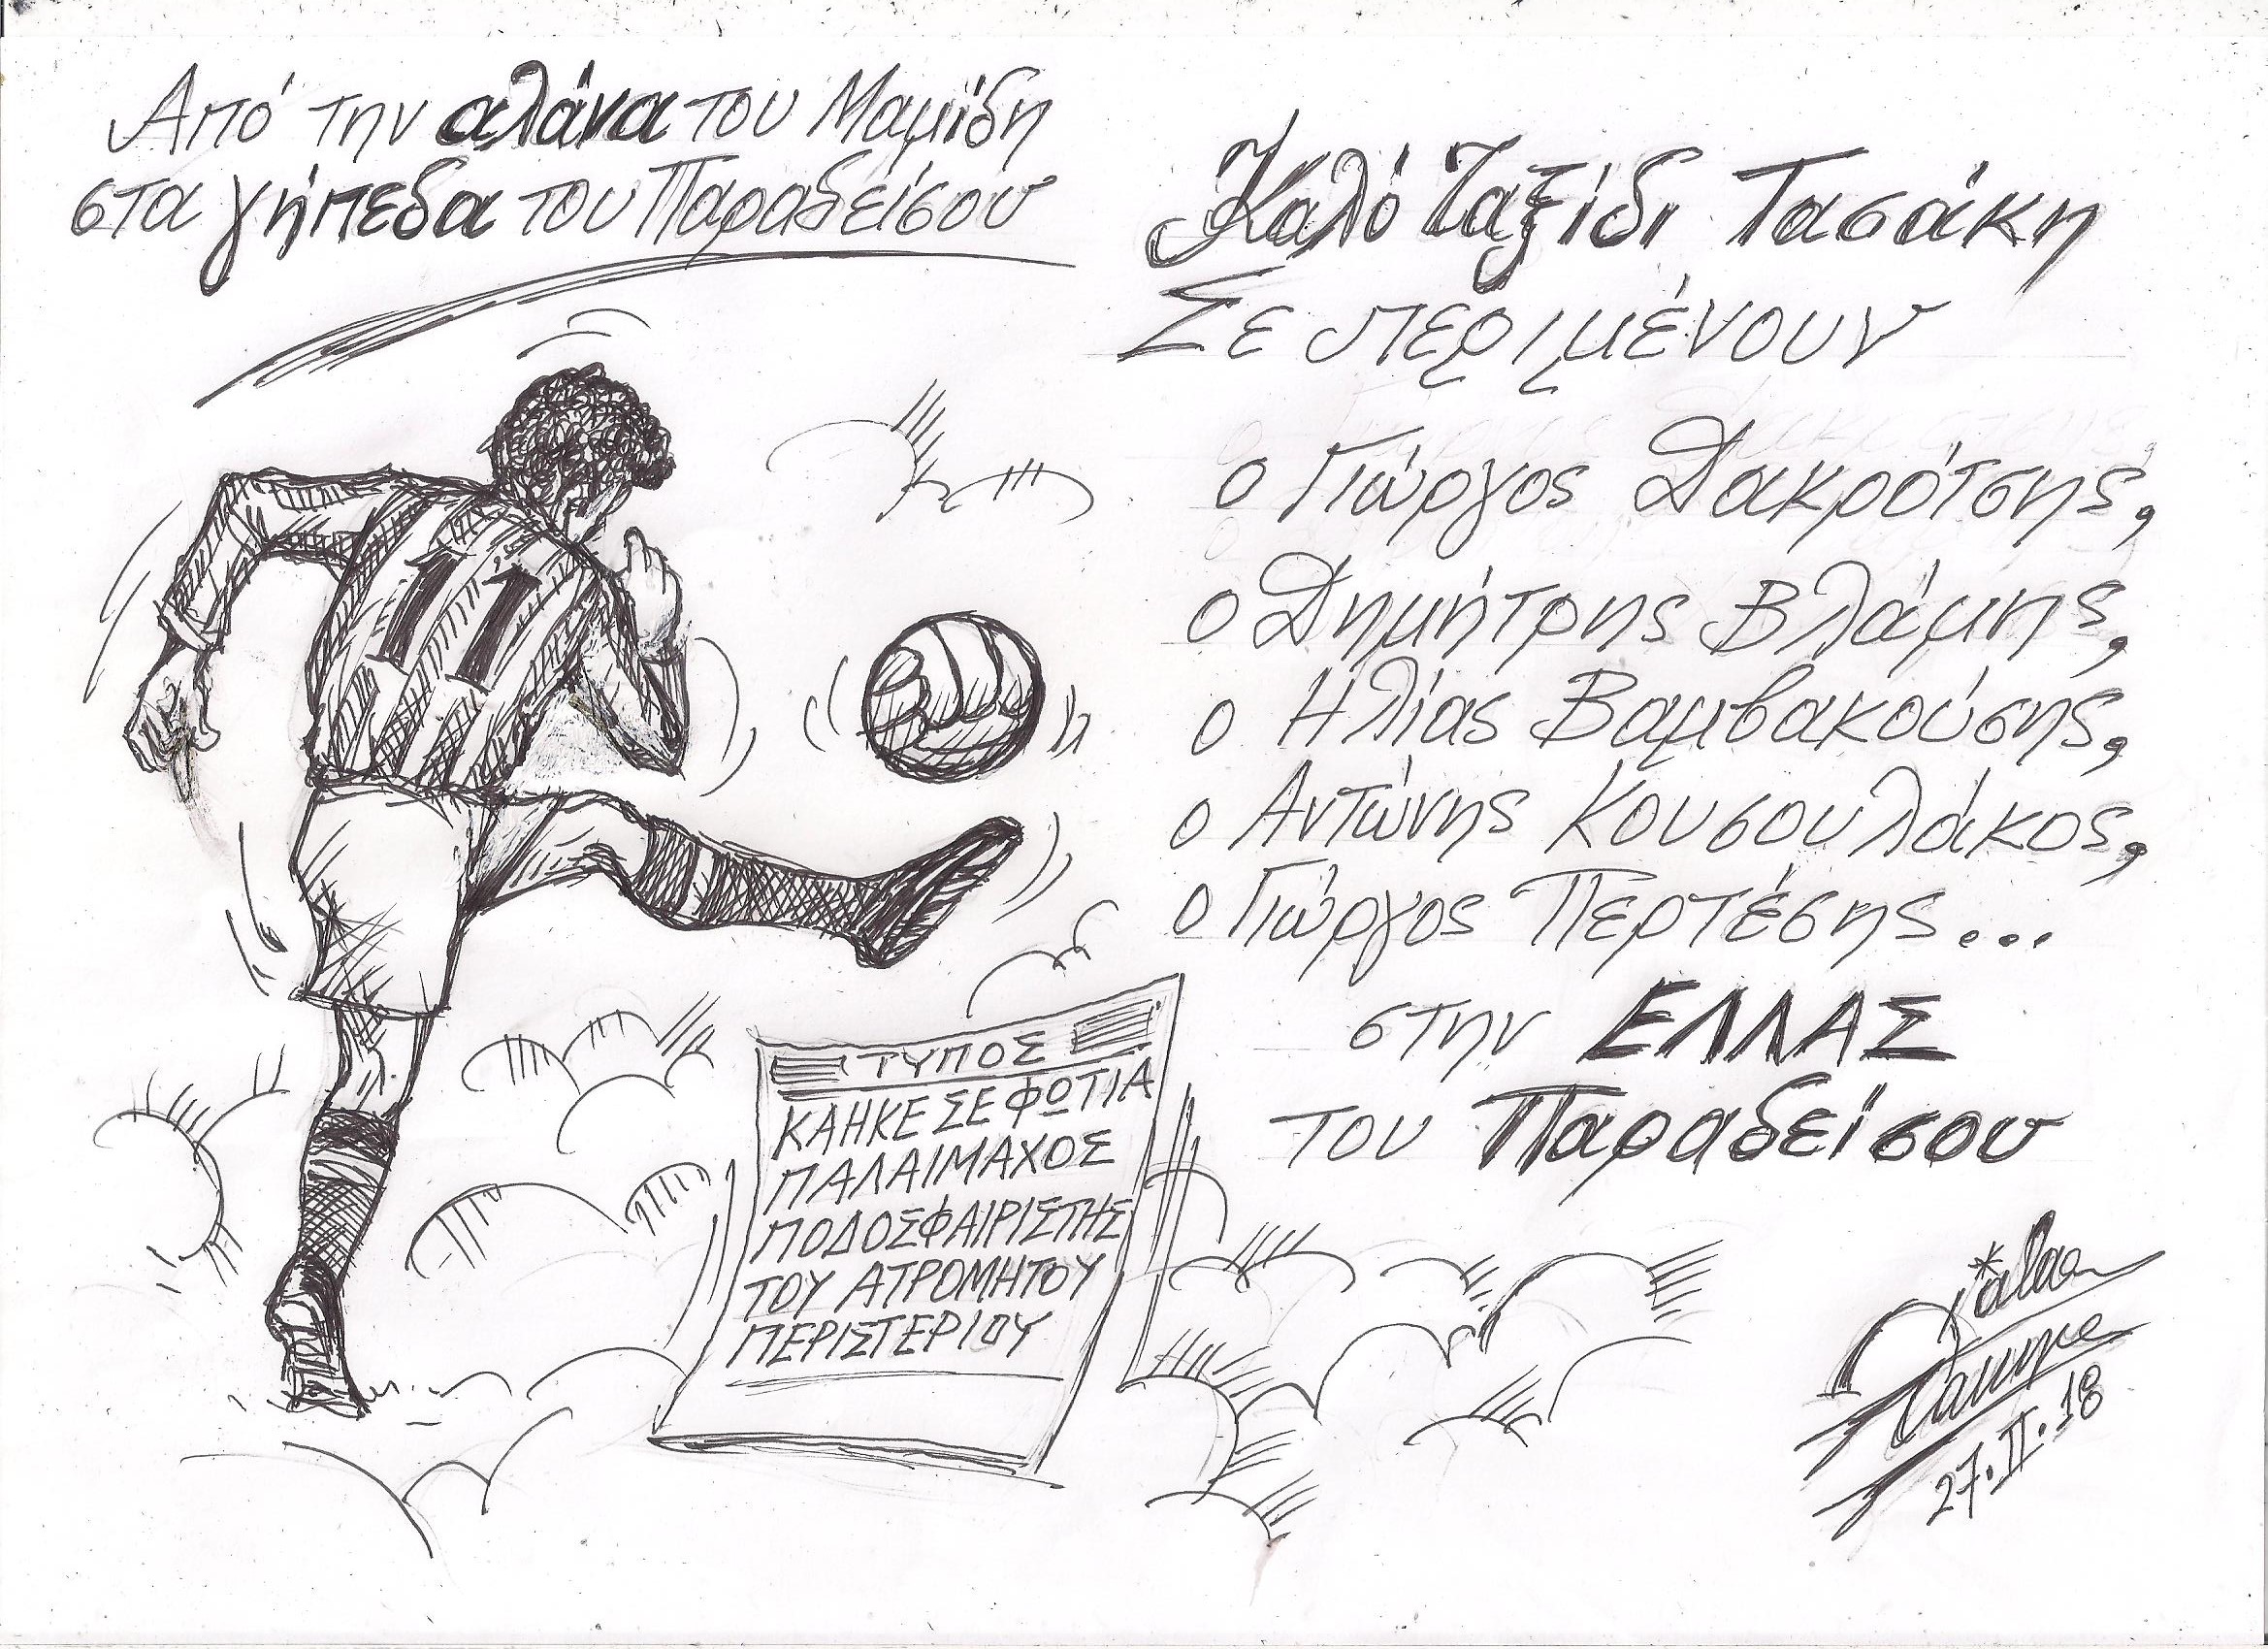 Από την αλάνα του Μαμίδη
στα γήπεδα του Παραδείσου
Καλό ταξίδι Τασάκη
Σε περιμένουν
ο Γιώργος Δακρότσης,
ο Δημήτρης Βλάμης,
ο Ηλίας Βαμβακούσης,
ο Αντώνης Κουσουλάκος,
ο Γιώργος Περτέσης...
στην ΕΛΛΑΣ
του Παραδείσου
11
ΤΥΠΟΣ
ΚΑΗΚΕ ΣΕ ΦΩΤΙΑ
ΠΑΛΑΙΜΑΧΟΣ
ΠΟΔΟΣΦΑΙΡΙΣΤΗΣ
ΤΟΥ ΑΤΡΟΜΗΤΟΥ
ΠΕΡΙΣΤΕΡΙΟΥ
27.II.18